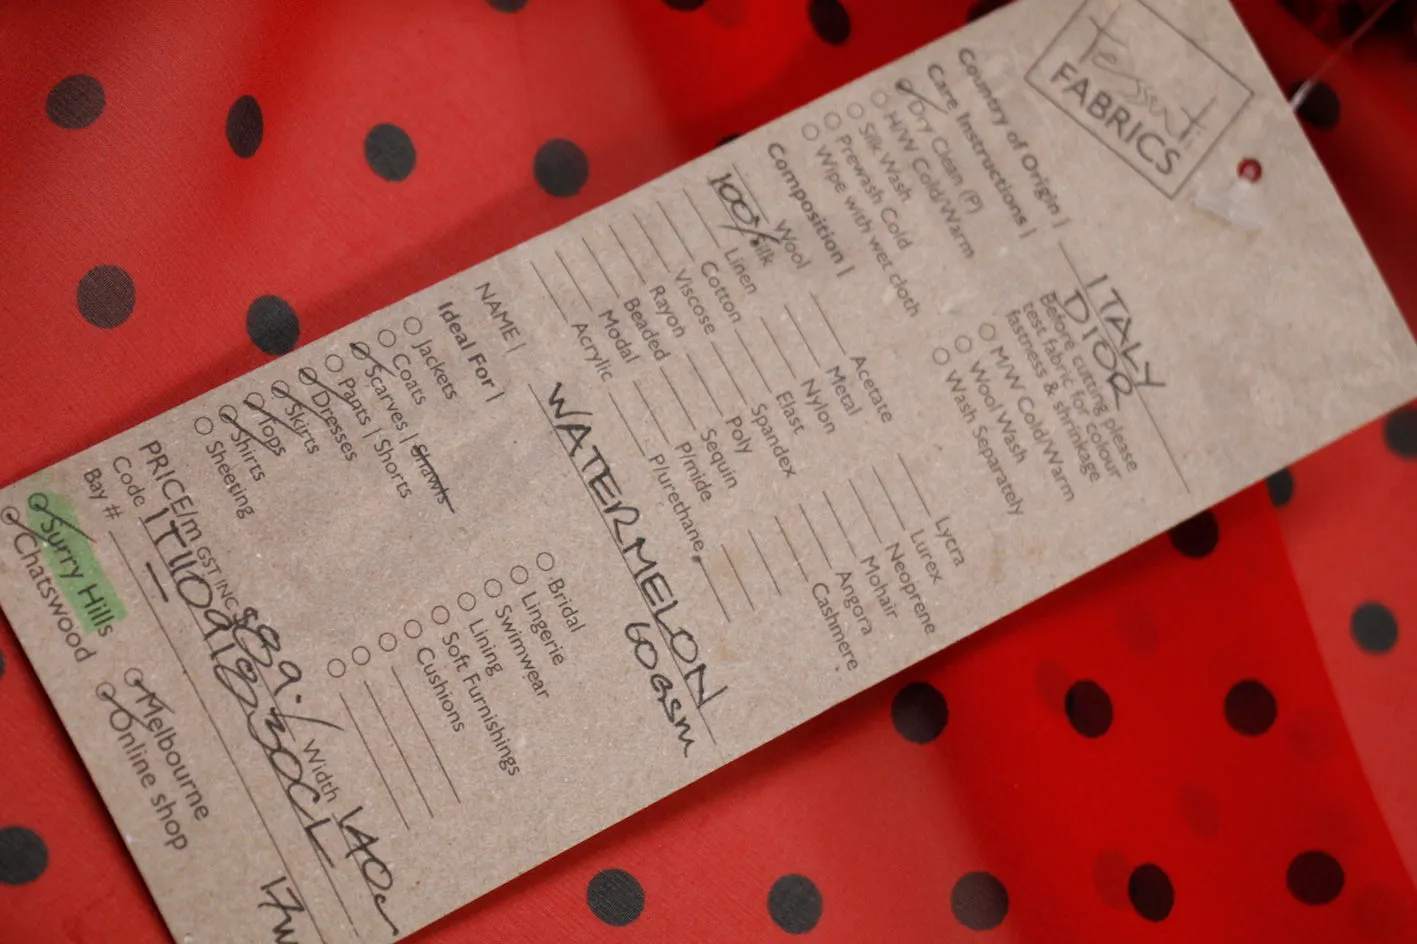 tessuti
FABRICS
Country of Origin | ITALY
DIOR
Care Instructions |
Before cutting please
test fabric for colour
fastness & shrinkage
Dry Clean (P)
H/W Cold/Warm
M/W Cold/Warm
Silk Wash
Wool Wash
Prewash Cold
Wash Separately
Wipe with wet cloth
Composition |
Wool Acetate Lycra
100% Silk Metal Lurex
Linen Nylon Neoprene
Cotton Elast Mohair
Viscose Spandex Angora
Rayon Poly Cashmere
Beaded Sequin
Modal P/mide
Acrylic P/urethane
NAME | WATERMELON
60GSM
Ideal For |
Jackets Bridal
Coats Lingerie
Scarves | Shawls Swimwear
Pants | Shorts Lining
Dresses Soft Furnishings
Skirts Cushions
Tops
Shirts
Sheeting
PRICE/m GST INC $89./ Width 140c
Code
Bay #
Surry Hills Melbourne
Chatswood Online shop